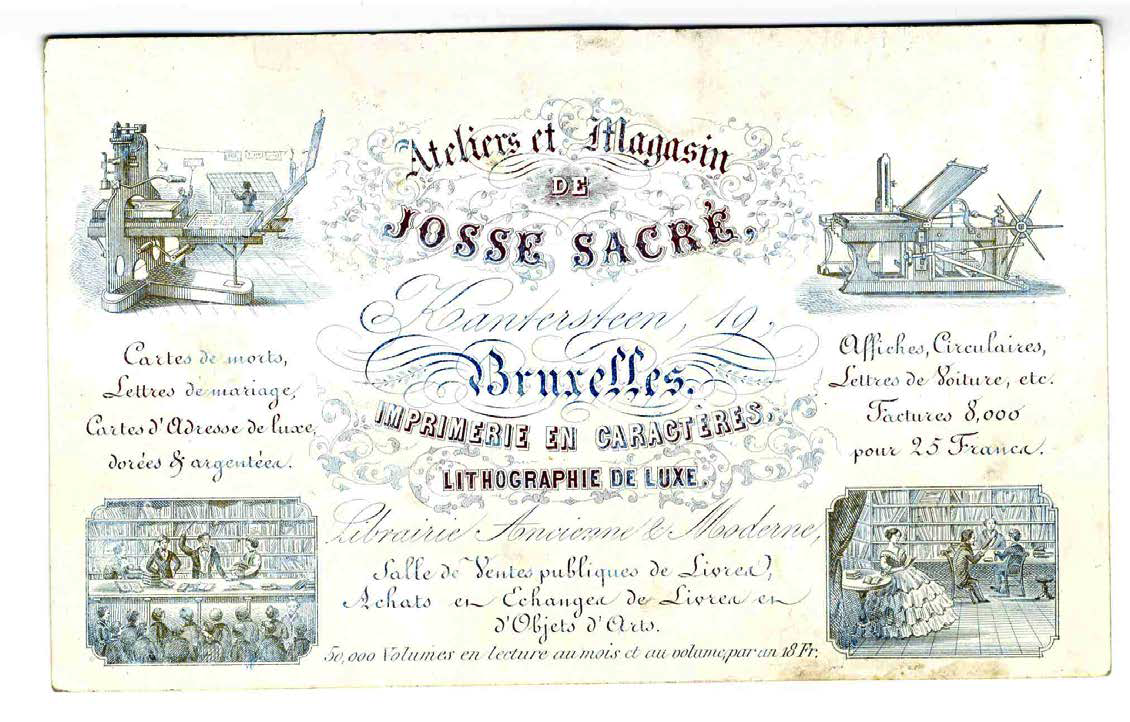 Ateliers et Magasin
DE
JOSSE SACRÉ,
Kantersteen, 19,
Bruxelles.
IMPRIMERIE EN CARACTÈRES,
LITHOGRAPHIE DE LUXE.
Librairie Ancienne & Moderne,
Salle de Ventes publiques de Livres,
Achats et Echanges de Livres et
d'Objets d'Arts.
50,000 Volumes en lecture au mois et au volume, par an 18 Fr.
Cartes de morts,
Lettres de mariage,
Cartes d'Adresse de luxe,
dorées & argentées.
Affiches, Circulaires,
Lettres de Voiture, etc.
Factures 8,000
pour 25 Francs.